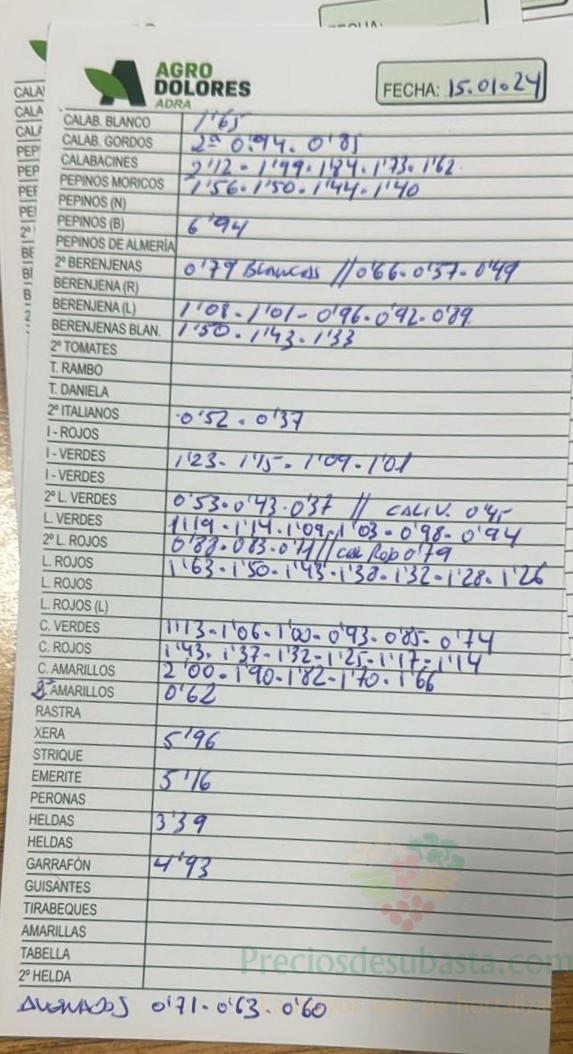 FECHA:
AGRO
DOLORES
ADRA
FECHA: 15.01.24
CALAB. BLANCO 1'65
CALAB. GORDOS 2ª 0'94. 0'85
CALABACINES 2'12 - 1'99 - 1'84 - 1'73 - 1'62
PEPINOS MORICOS 1'56 - 1'50 - 1'44 - 1'40
PEPINOS (N)
PEPINOS (B) 6'94
PEPINOS DE ALMERÍA
2º BERENJENAS 0'79 BLANCAS // 0'66 - 0'57 - 0'49
BERENJENA (R)
BERENJENA (L) 1'08 - 1'01 - 0'96 - 0'92 - 0'89
BERENJENAS BLAN. 1'50 - 1'43 - 1'33
2º TOMATES
T. RAMBO
T. DANIELA
2º ITALIANOS 0'52 - 0'37
I - ROJOS
I - VERDES 1'23 - 1'15 - 1'09 - 1'01
I - VERDES
2º L. VERDES 0'53 - 0'43 - 0'37 // CALIV. 0'45
L. VERDES 1'19 - 1'14 - 1'09 - 1'03 - 0'98 - 0'94
2º L. ROJOS 0'88 - 0'83 - // 0'79
L. ROJOS 1'63 - 1'50 - 1'43 - 1'38 - 1'32 - 1'28 - 1'26
L. ROJOS
L. ROJOS (L)
C. VERDES 1'13 - 1'06 - 1'00 - 0'93 - 0'85 - 0'74
C. ROJOS 1'43 - 1'37 - 1'32 - 1'25 - 1'17 - 1'14
C. AMARILLOS 2'00 - 1'90 - 1'82 - 1'70 - 1'66
2ª AMARILLOS 0'62
RASTRA
XERA 5'96
STRIQUE
EMERITE 5'16
PERONAS
HELDAS 3'39
HELDAS
GARRAFÓN 4'93
GUISANTES
TIRABEQUES
AMARILLAS
TABELLA
Preciosdesubasta.com
2º HELDA
0'71 - 0'63 - 0'60